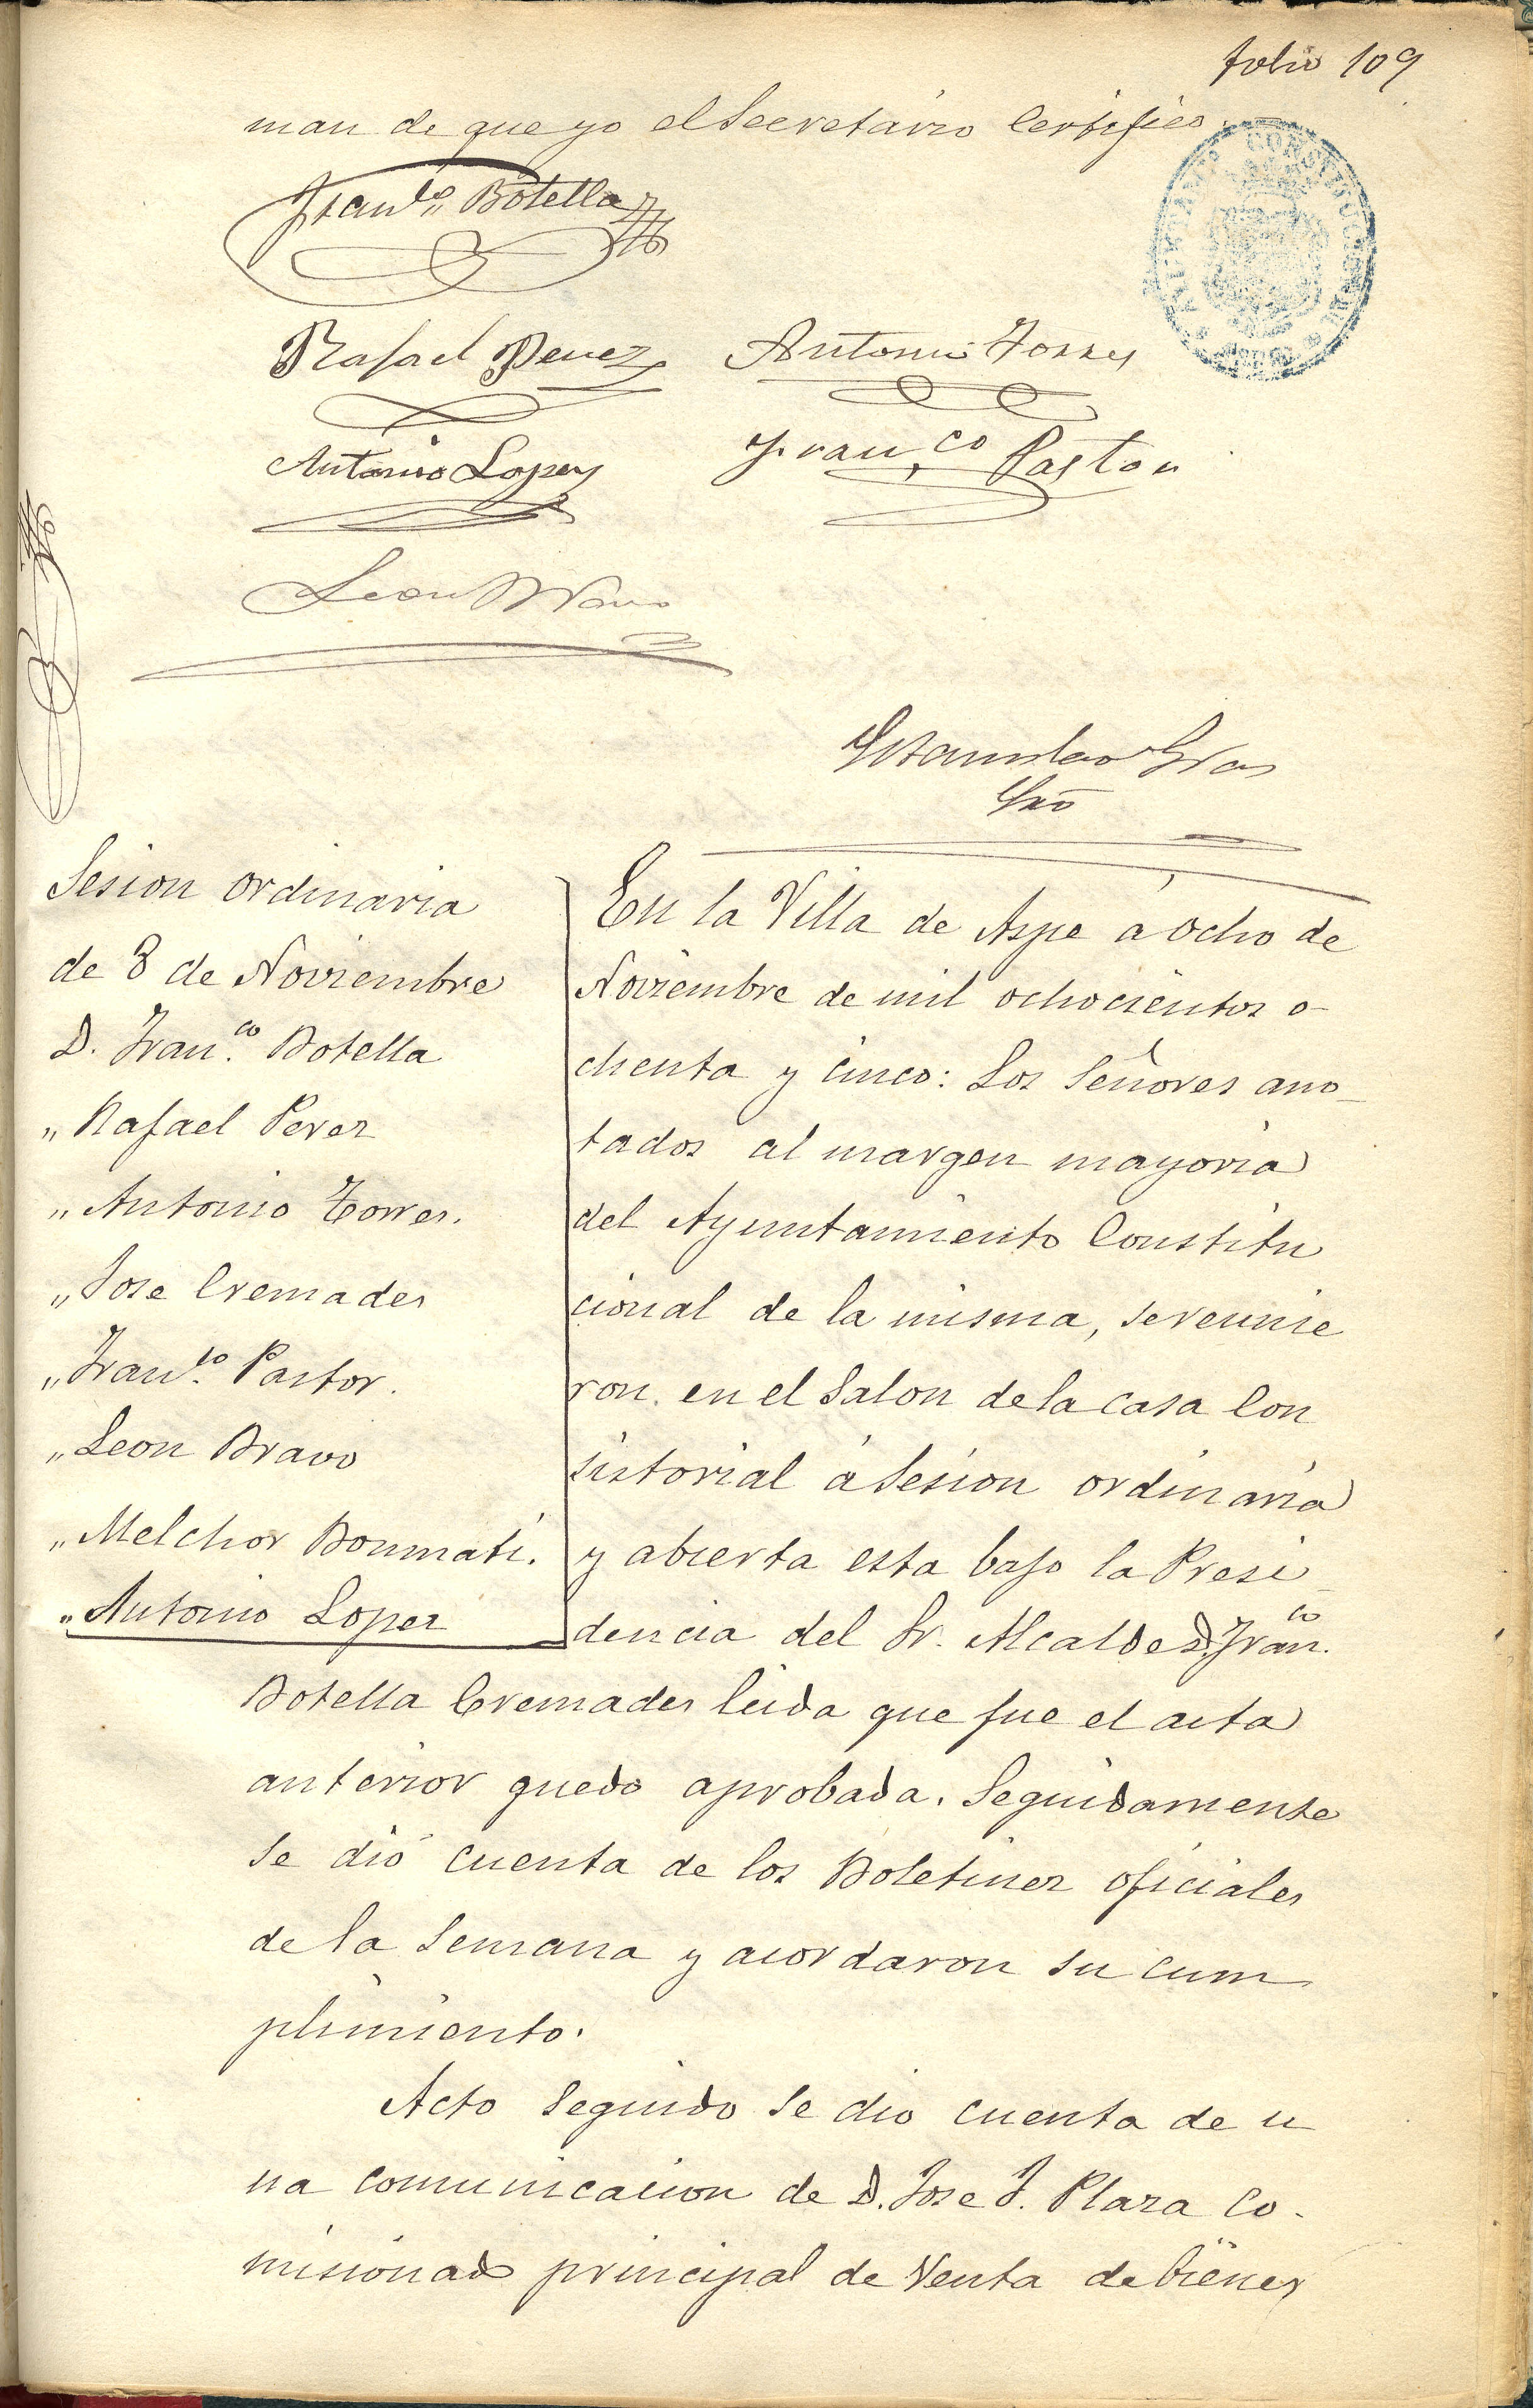 folio 109
man de que yo el Secretario Certifico.
AYUNTAMIENTO CONSTITUCIONAL DE
Fran.co Botella
Rafael Perez
Antonio Torres
Antonio Lopez
Fran.co Pastor
Leon Bravo
Estanislao Gras
Srio
Sesion ordinaria
de 8 de Noviembre
D. Fran.co Botella
" Rafael Perez
" Antonio Torres.
" Jose Cremades
" Fran.co Pastor.
" Leon Bravo
" Melchor Bonmati.
" Antonio Lopez
En la Villa de Aspe á ocho de
Noviembre de mil ochocientos o-
chenta y cinco: Los Señores ano-
tados al margen mayoria
del Ayuntamiento Constitu
cional de la misma, se reunie
ron en el Salon de la casa Con
sistorial á Sesion ordinaria
y abierta esta bajo la Presi-
dencia del Sr. Alcalde D. Fran.co
Botella Cremades leida que fue el acta
anterior quedo aprobada. Seguidamente
se dió cuenta de los Boletines oficiales
de la Semana y acordaron su cum
plimiento.
Acto Seguido se dio cuenta de u
na comunicacion de D. Jose J. Plaza Co-
misionado principal de Venta de bienes